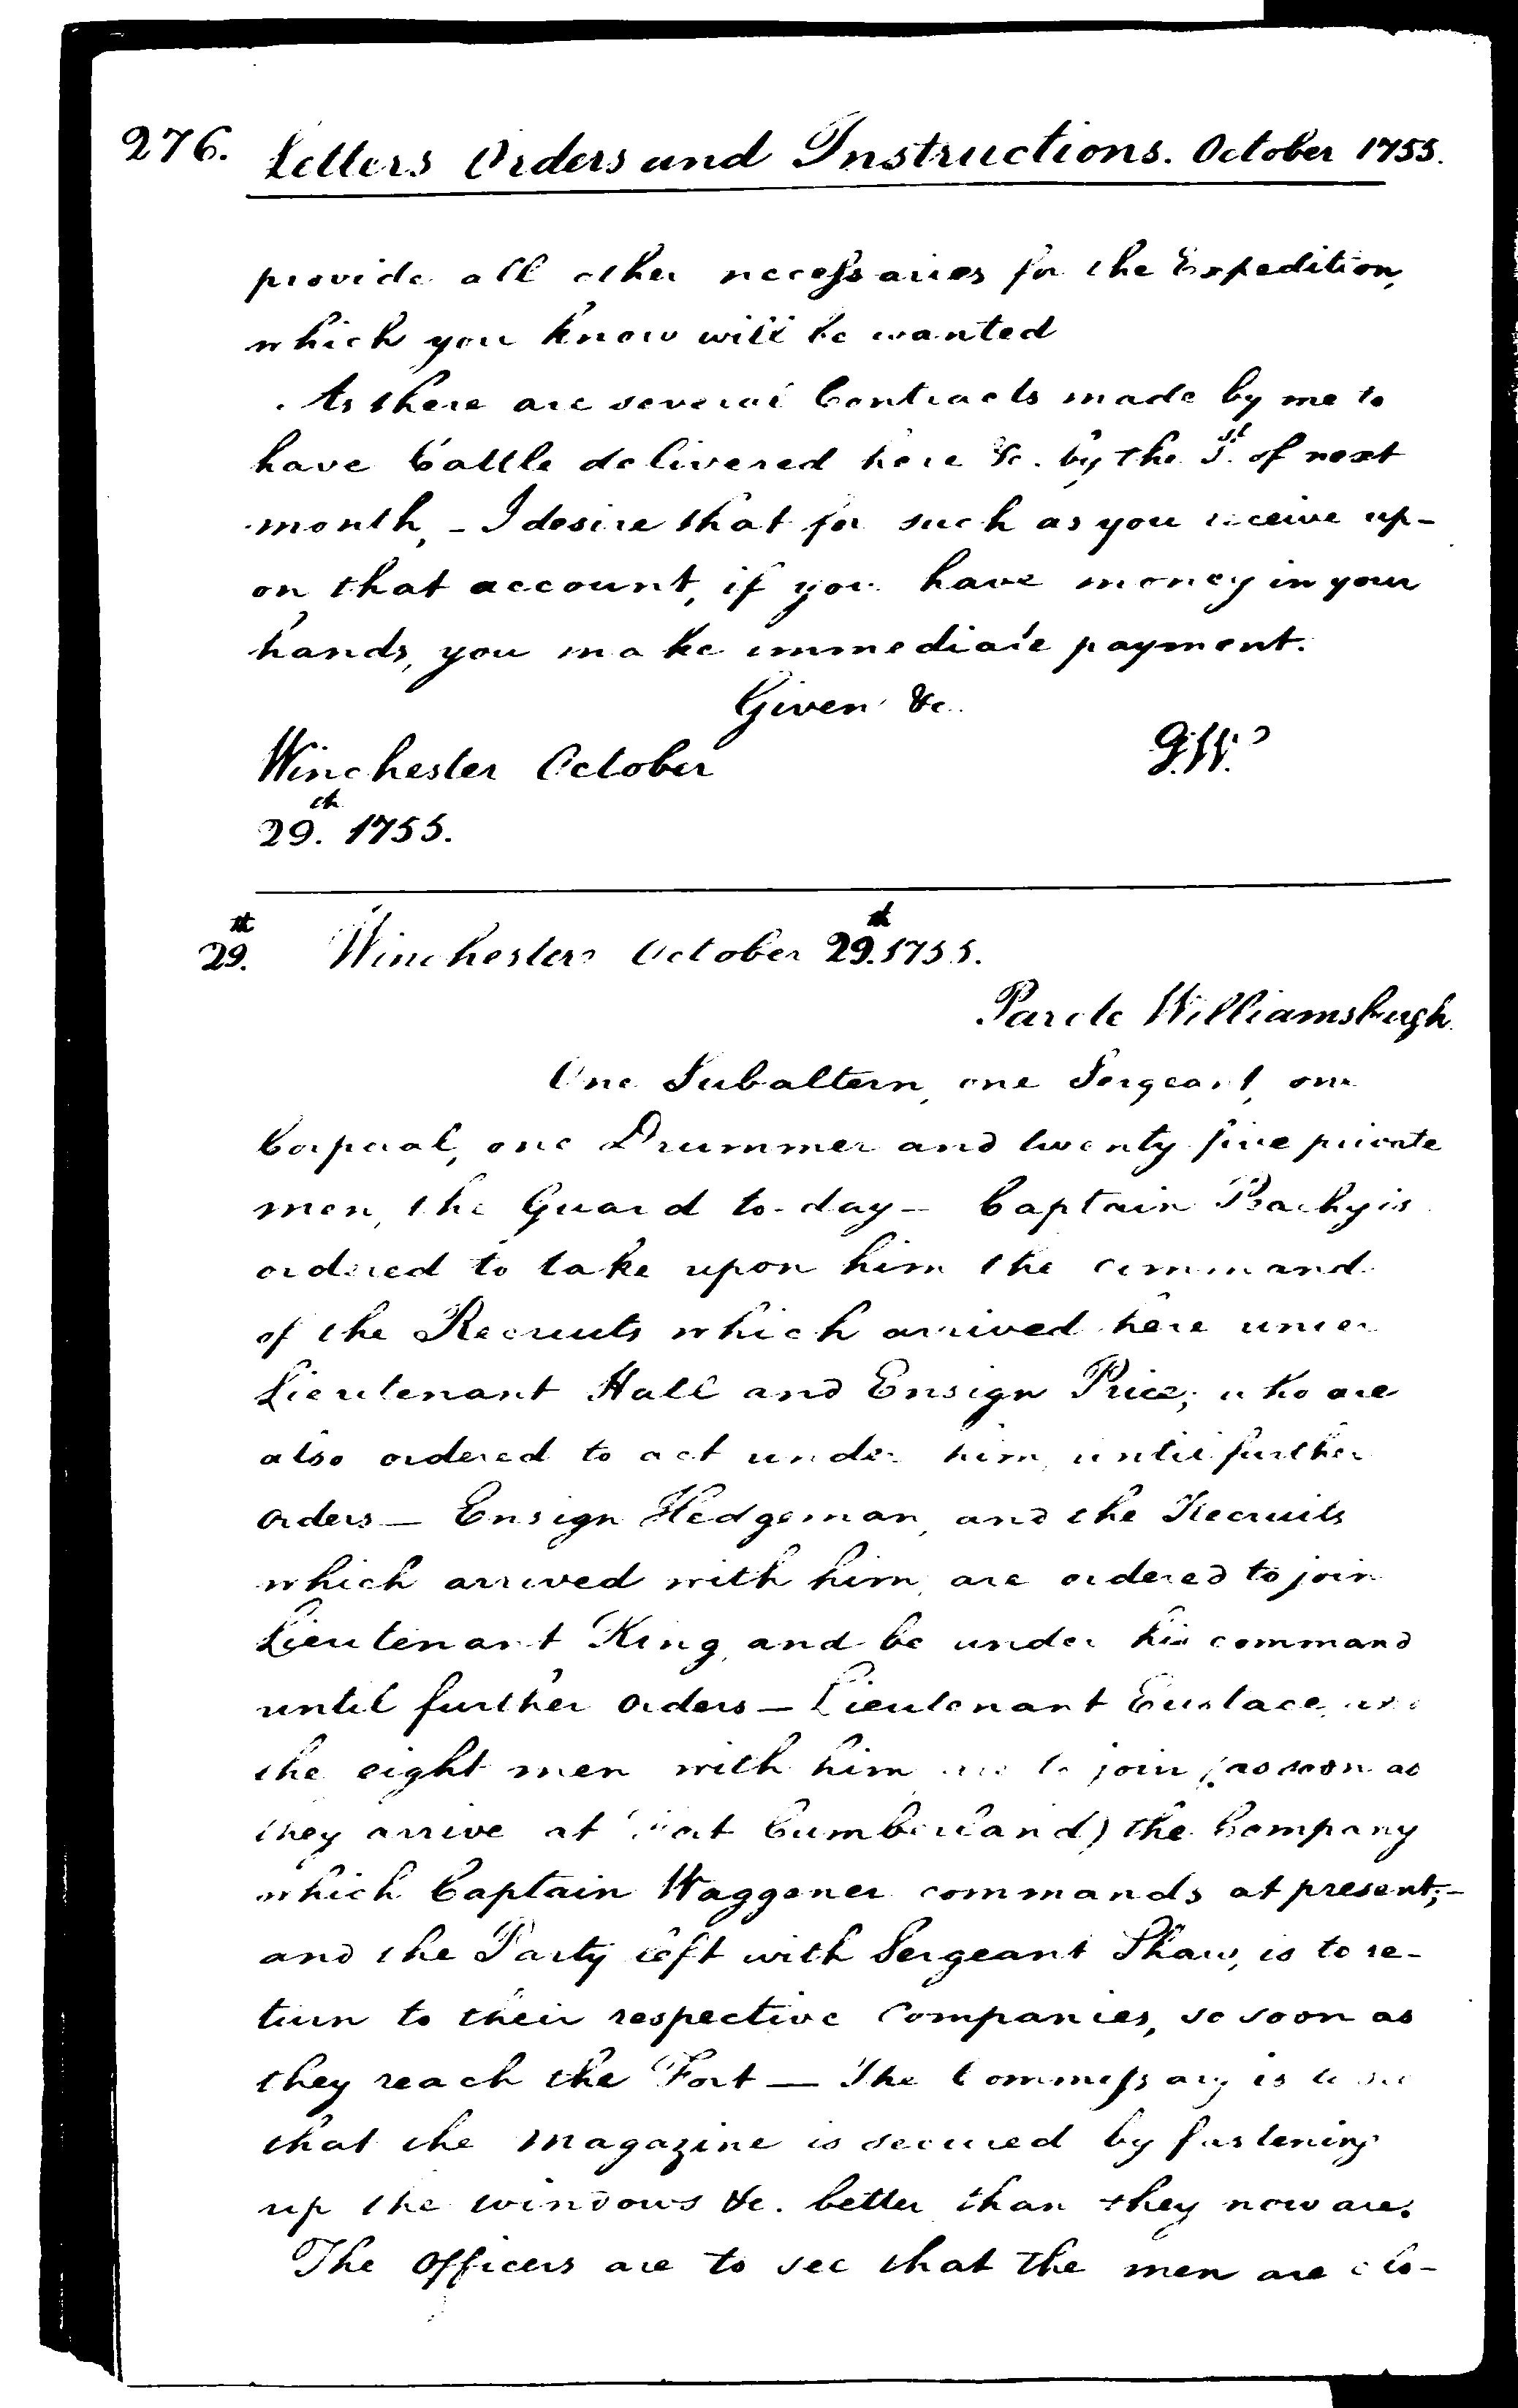 276. Letters Orders and Instructions. October 1755.
provide all other necessaries for the Expedition,
which you know will be wanted
As there are several Contracts made by me to
have Cattle delivered here &c. by the 1st. of next
month, - I desire that for such as you receive up-
on that account, if you have money in your
hands, you make immediate payment.
Given &c.
Winchester October
G:W.
29.th 1755.
29.th Winchester October 29.th 1755.
Parole Williamsburgh.
One Subaltern, one Sergeant, one
Corporal, one Drummer and twenty five private
men, the Guard to-day - Captain Peachy is
ordered to take upon him the command
of the Recruits which arrived here under
Lieutenant Hall and Ensign Price; who are
also ordered to act under him, until further
orders - Ensign Hedgeman, and the Recruits
which arrived with him, are ordered to join
Lieutenant King, and be under his command
until further Orders - Lieutenant Eustace, and
the eight men with him are to join (as soon as
they arrive at Fort Cumberland) the Company
which Captain Waggener commands at present; -
and the Party left with Sergeant Shaw, is to re-
turn to their respective Companies, so soon as
they reach the Fort - The Commissary is to see
that the magazine is secured by fastening
up the windows &c. better than they now are.
The Officers are to see that the men are clo-